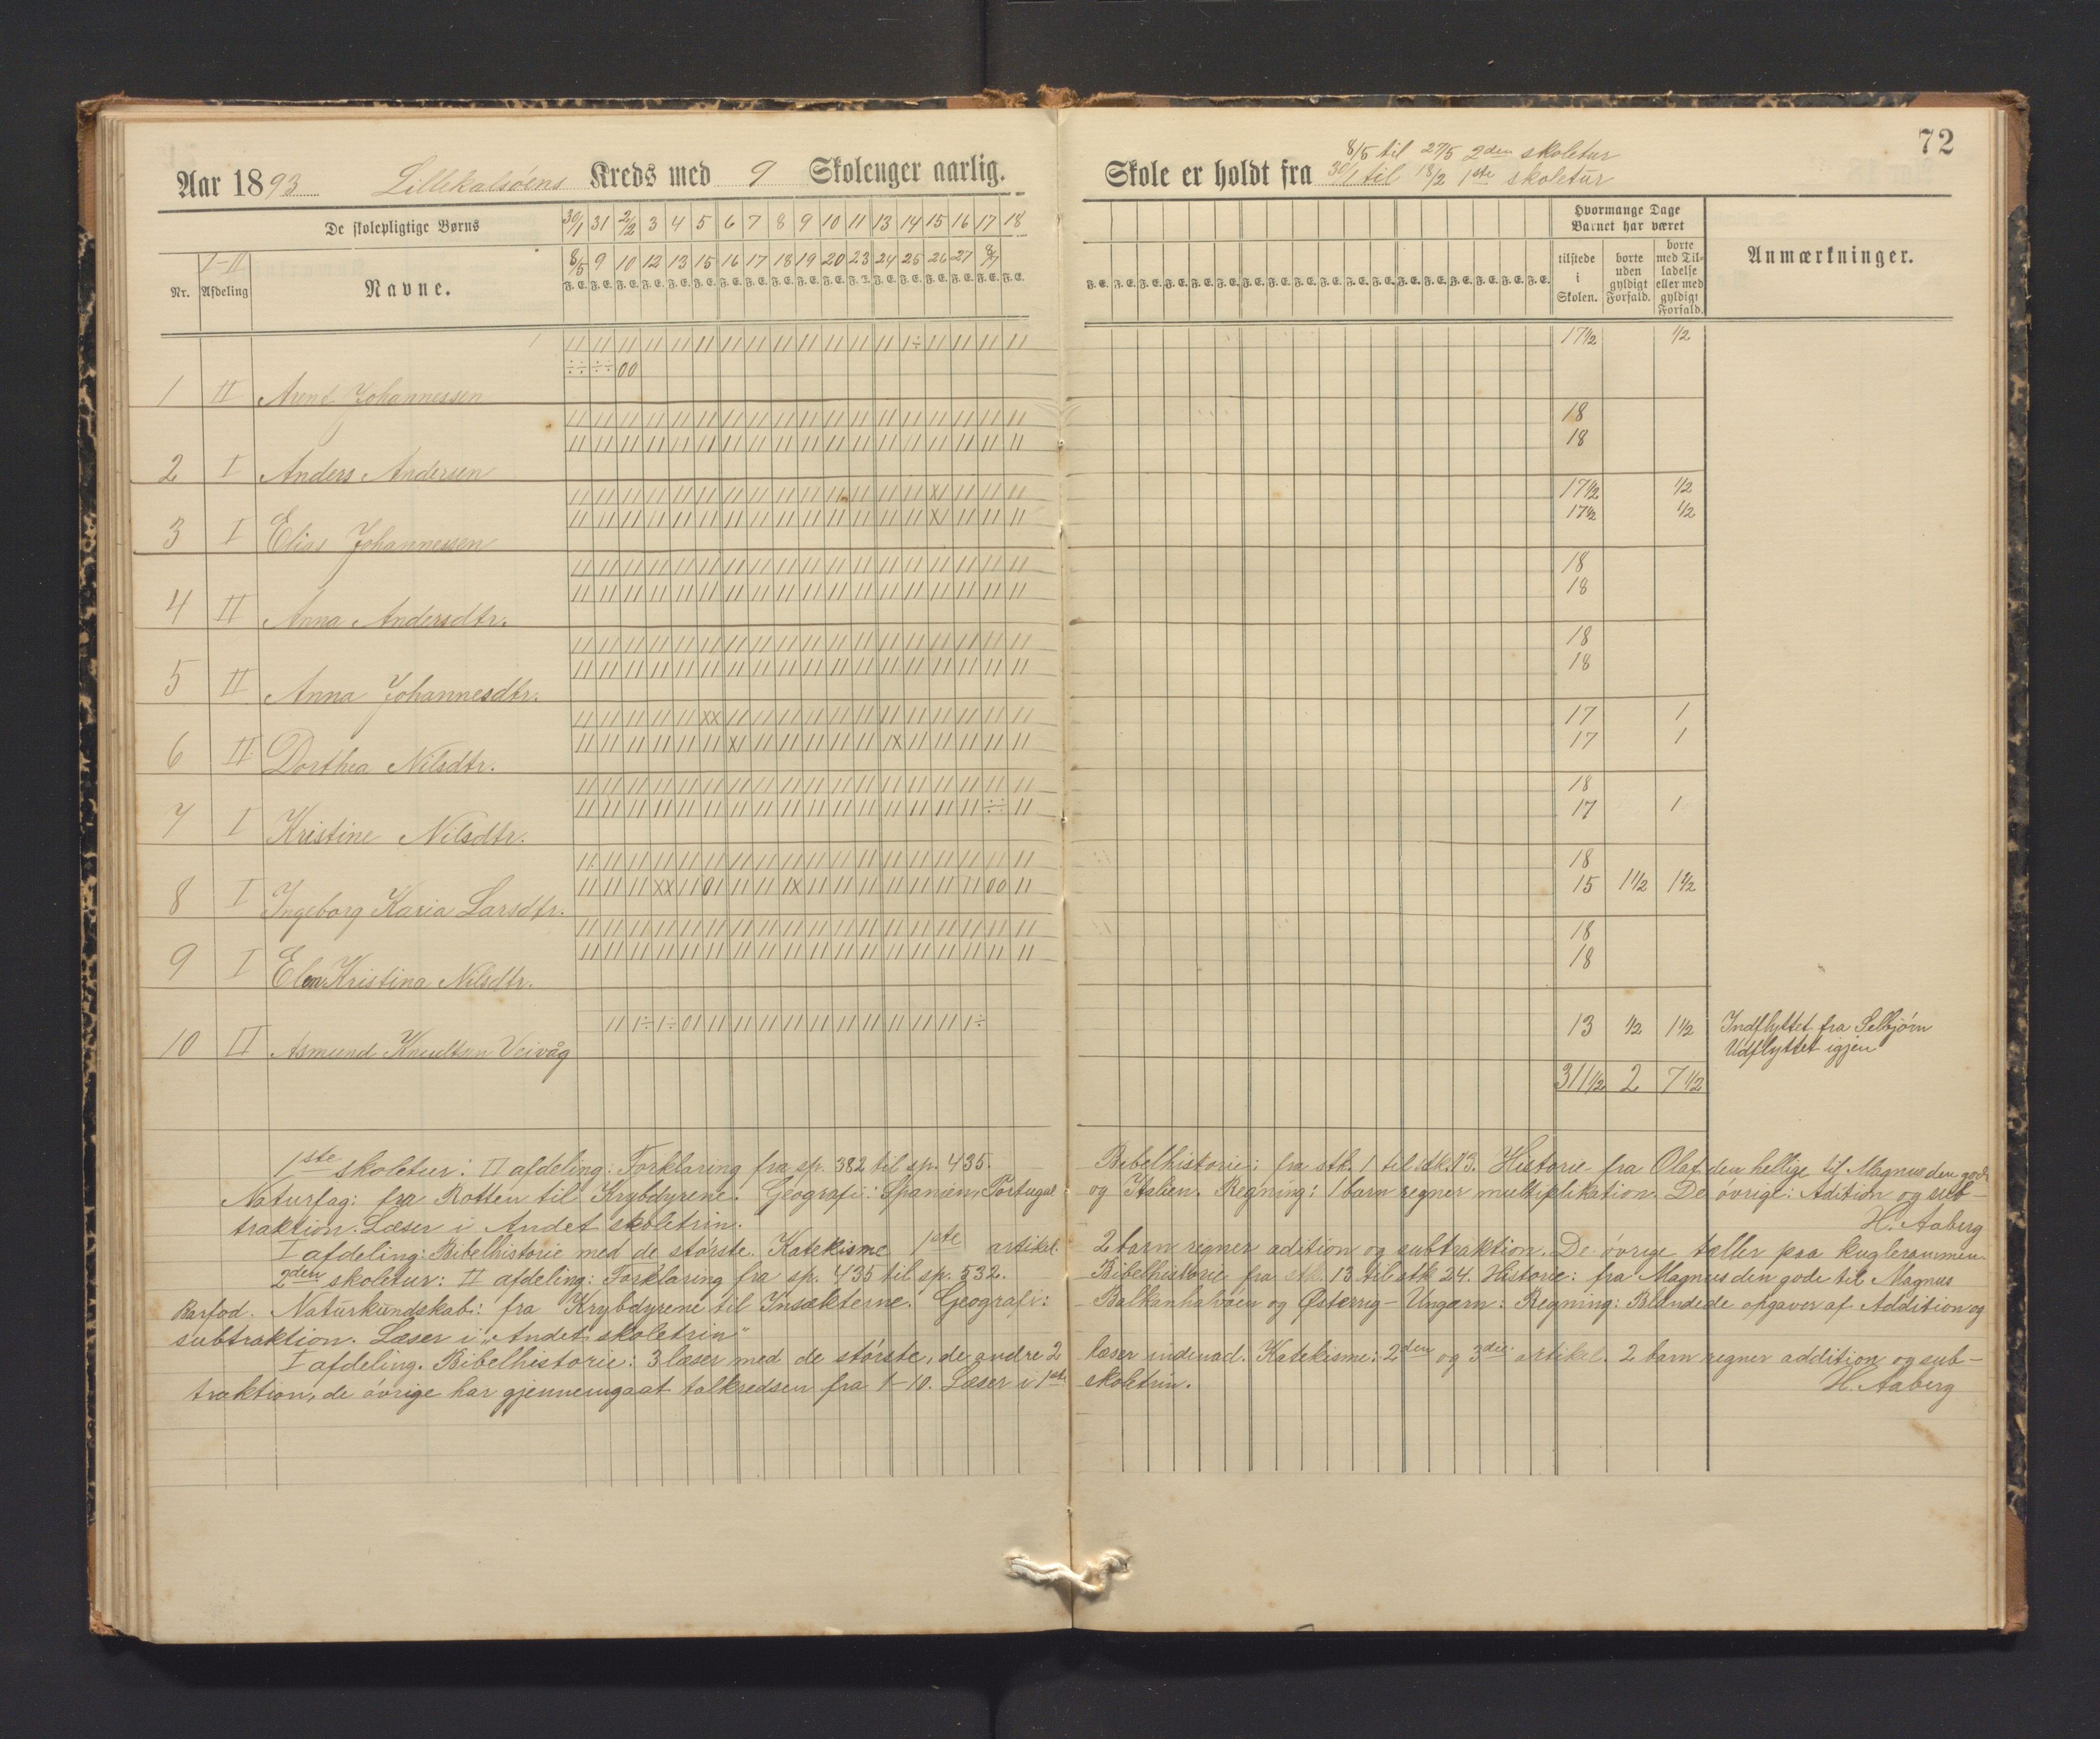 72
Aar 1893 Lillekalsøens Kreds med 9 Skoleuger aarlig.
Skole er holdt fra 8/5 til 27/5 2den skoletur
30/1 til 18/2 1ste skoletur
De skolepligtige Børns
30/1 31 2/2 3 4 5 6 7 8 9 10 11 13 14 15 16 17 18
8/5 9 10 12 13 15 16 17 18 19 20 23 24 25 26 27 8/7
Hvormange Dage Barnet har været
Nr. I-II Afdeling Navne.
tilstede i Skolen.
borte uden gyldigt Forfald.
borte med Tilladelse eller med gyldigt Forfald.
Anmærkninger.
1 II Arent Johannessen 17 1/2 1/2
2 I Anders Andersen 18
18
3 I Elias Johannessen 17 1/2 1/2
17 1/2 1/2
4 II Anna Andersdtr. 18
18
5 II Anna Johannesdtr. 18
18
6 II Dorthea Nilsdtr. 17 1
17 1
7 I Kristine Nilsdtr. 18
17 1
8 I Ingeborg Karia Larsdtr. 18
15 1 1/2 1 1/2
9 I Elen Kristina Nilsdtr. 18
18
10 II Asmund Knudtsen Veivåg 13 1/2 1 1/2 Indflyttet fra Selbjörn
Udflyttet igjen
311 1/2 2 7 1/2
1ste skoletur: II afdeling: Forklaring fra sp. 382 til sp. 435. Bibelhistorie: fra stk. 1 til stk. 13. Historie fra Olaf den hellige til Magnus den gode
Naturfag: fra Rotten til Krybdyrene. Geografi: Spanien, Portugal og Italien. Regning: 1 barn regner multiplikation. De øvrige: Adition og sub-
traktion. Læser i Andet skoletrin. H. Aaberg
I afdeling: Bibelhistorie med de største. Katekisme 1ste artikel. 2 barn regner adition og subtraktion. De øvrige tæller paa kuglerammen.
2den skoletur: II afdeling: Forklaring fra sp. 435 til sp. 532. Bibelhistorie fra stk. 13 til stk 24. Historie: fra Magnus den gode til Magnus
Barfod. Naturkundskab: fra Krybdyrene til Insekterne. Geografi: Balkanhalvøen og Østerrig-Ungarn: Regning: Blandede opgaver af Addition og
subtraktion. Læser i „Andet skoletrin"
I afdeling. Bibelhistorie: 3 læser med de største, de andre 2 læser indenad. Katekisme: 2den og 3die artikel. 2 barn regner addition og sub-
traktion, de øvrige har gjennemgaat talkredsen fra 1-10. Læser i 1ste skoletrin. H. Aaberg